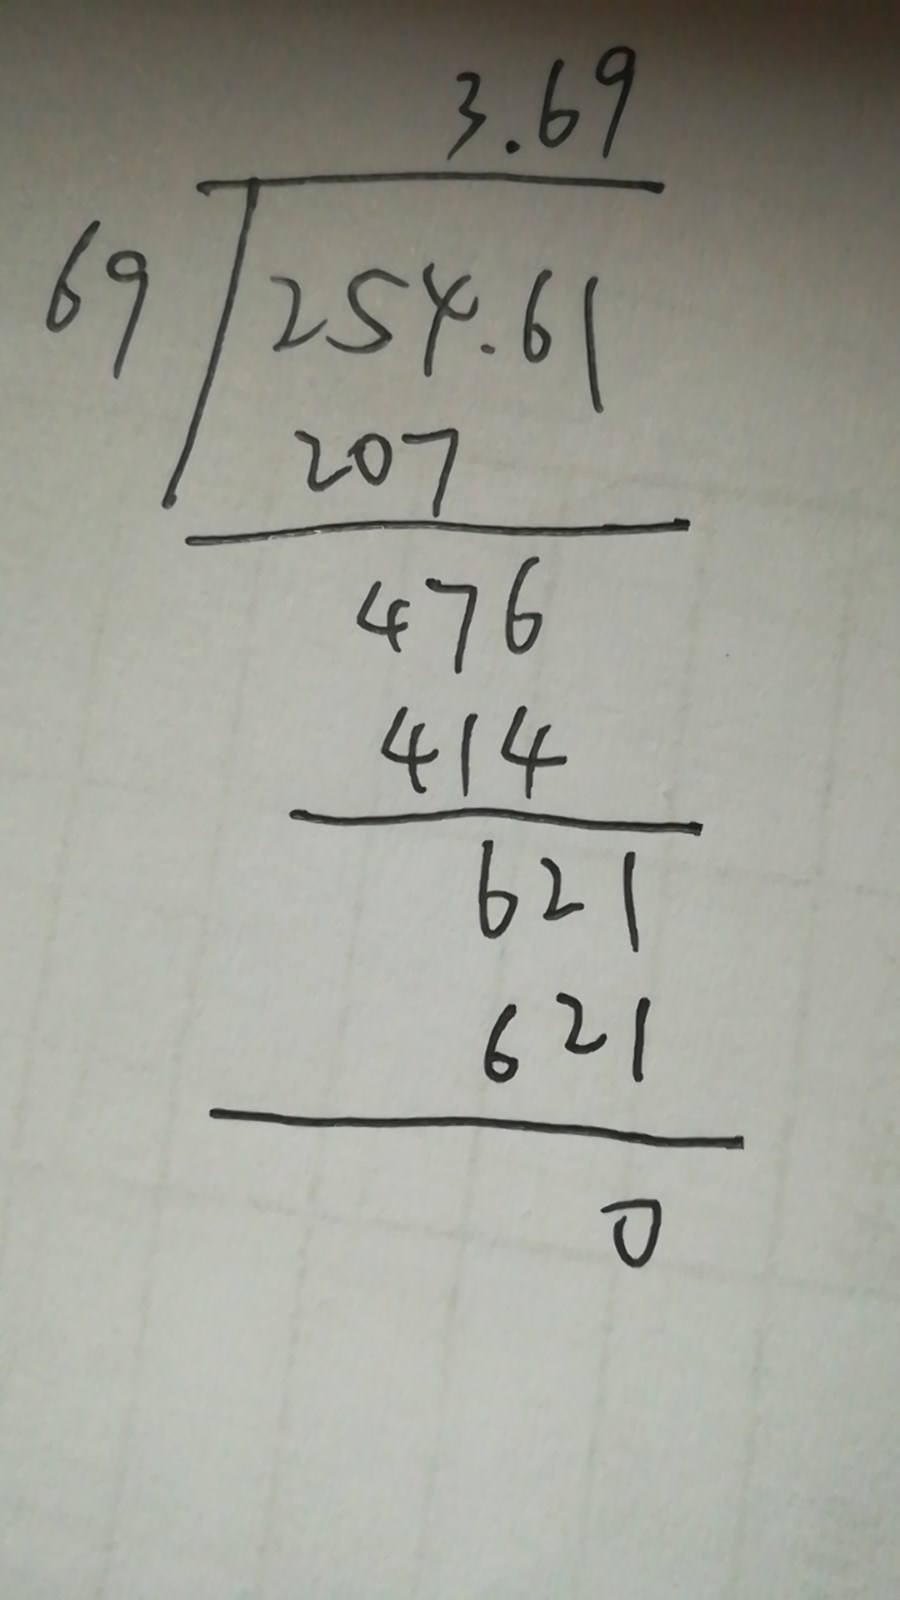 3.69
69 254.61
207
476
414
621
621
0